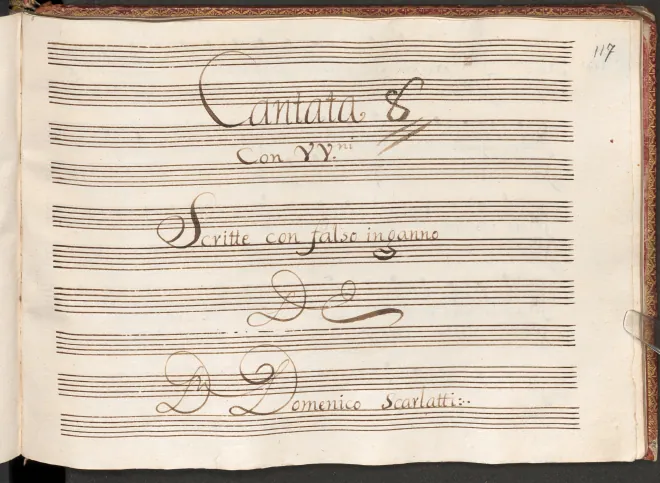 117
Cantata 8
Con VV.ni
Scritte con falso inganno
De
D Domenico Scarlatti:.